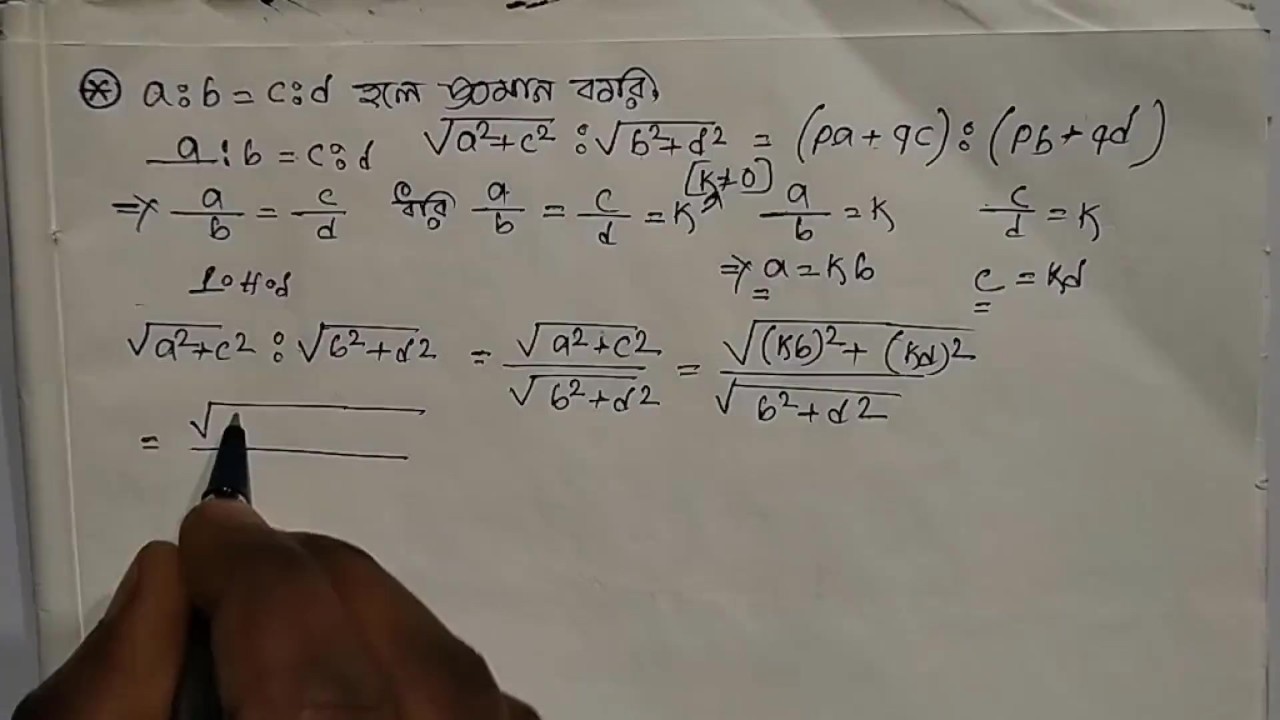 ⊛ a:b = c:d হলে প্রমাণ করি,
√a²+c² : √b²+d² = (pa+qc) : (pb+qd)
a:b = c:d
⇒ a/b = c/d ধরি a/b = c/d = K [K≠0] a/b = K c/d = K
⇒ a = Kb c = Kd
L.H.S
√a²+c² : √b²+d² = √a²+c² / √b²+d² = √(Kb)²+(Kd)² / √b²+d²
= √